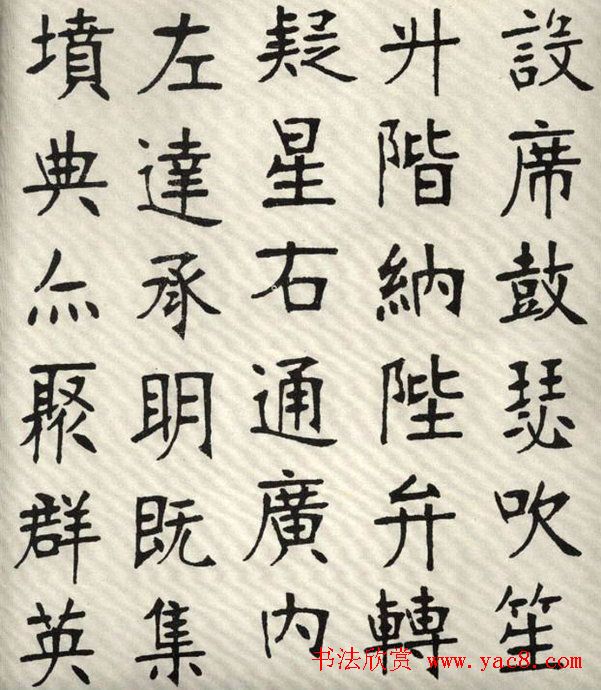 設席鼓瑟吹笙
升階納陛弁轉
疑星右通廣内
左達承明既集
墳典亦聚群英
书法欣赏 www.yac8.com